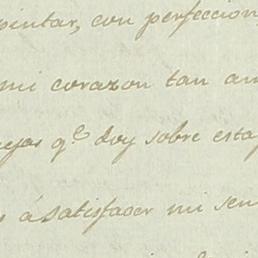 pintar, con perfeccion
mi corazon tan am
quejas q.e doy sobre esta
s á satisfacer mi sen